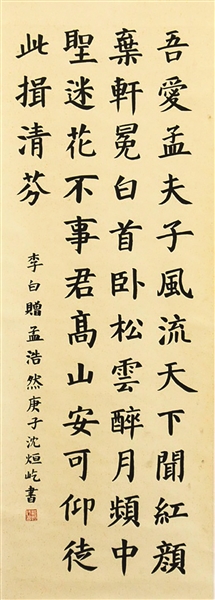 吾愛孟夫子風流天下聞紅顏
棄軒冕白首卧松雲醉月頻中
聖迷花不事君髙山安可仰徒
此揖清芬
李白贈孟浩然庚子沈烜屹書